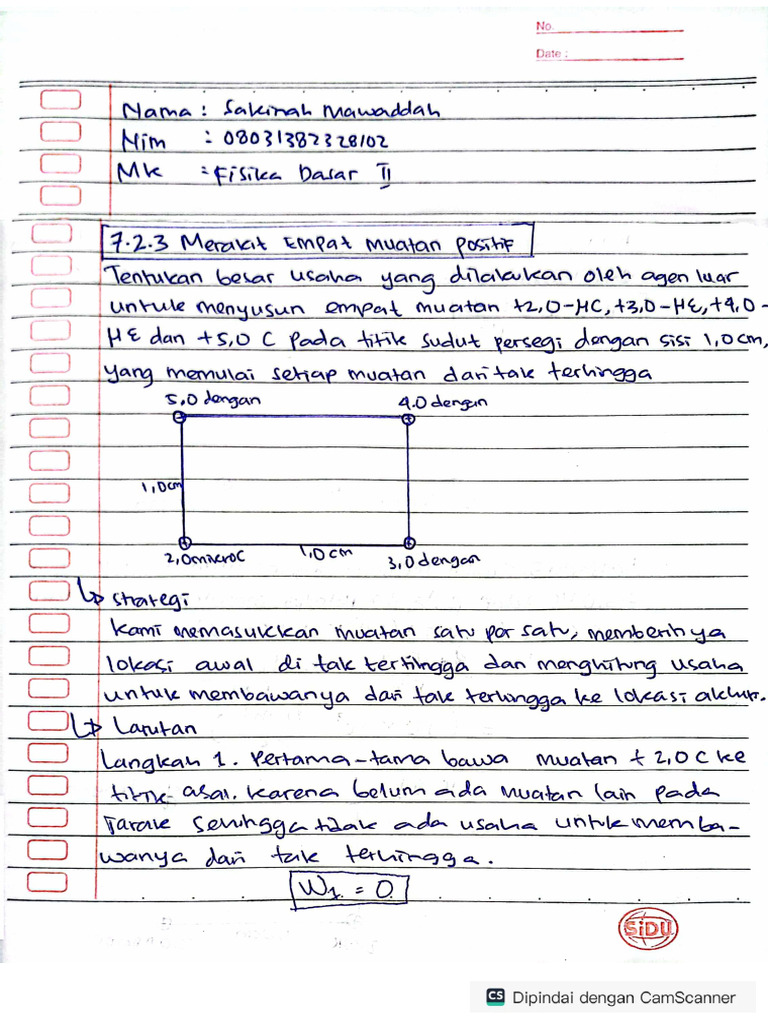 No.
Date :
Nama : Sakinah Mawaddah
Nim : 08031382328102
Mk : Fisika Dasar II
7.2.3 Merakit Empat Muatan Positif
Tentukan besar usaha yang dilakukan oleh agen luar
untuk menyusun empat muatan +2,0-μC, +3,0-μC, +4,0-
μC dan +5,0 C pada titik sudut persegi dengan sisi 1,0 cm,
yang memulai setiap muatan dari tak terhingga
5,0 dengan 4.0 dengan
1,0cm
2,0mikroC 1,0 cm 3,0 dengan
↳ Strategi
Kami memasukkan muatan satu por satu, memberinya
lokasi awal di tak terhingga dan menghitung usaha
untuk membawanya dari tak terhingga ke lokasi akhir.
↳ Larutan
Langkah 1. Pertama-tama bawa muatan + 2,0 C ke
titik asal. Karena belum ada muatan lain pada
Jarak sehingga tidak ada usaha untuk memba-
wanya dari tak terhingga.
W₁ = 0
SiDU
CS Dipindai dengan CamScanner